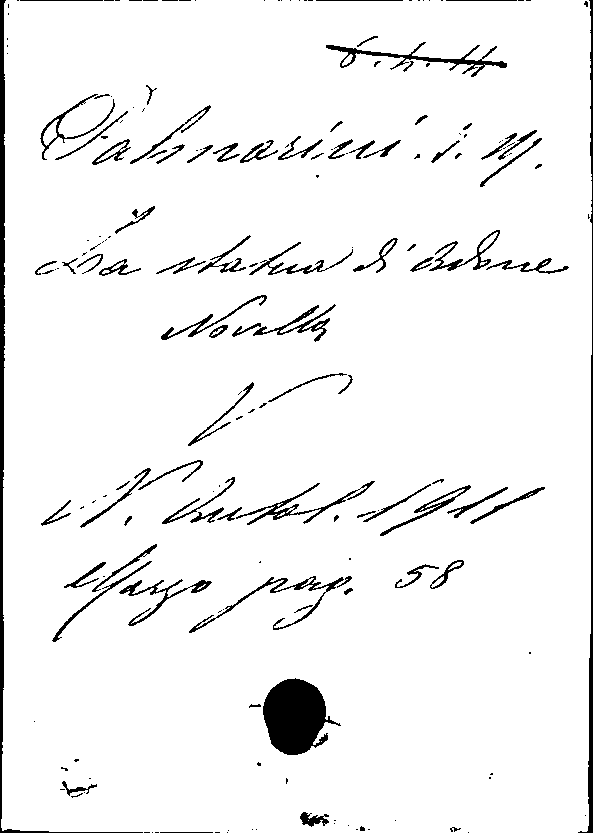 6.4.14
Palmarini. I. M.
La statua di Adone
Novella
V
N. Antol. 1911
Marzo pag. 58